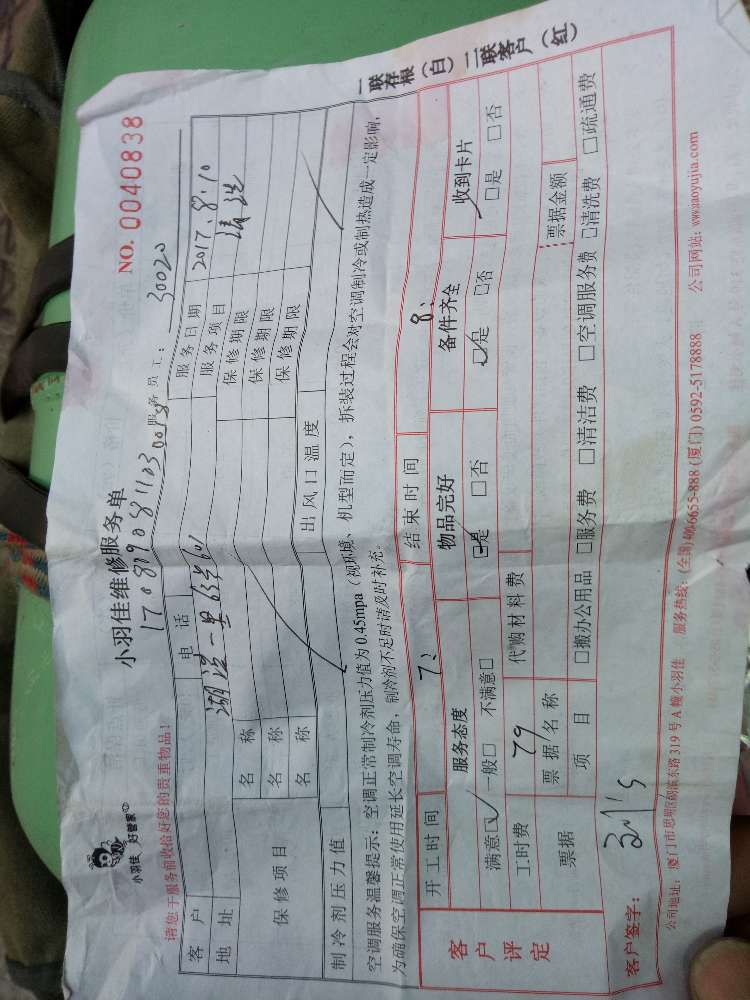 小羽佳 好管家
小羽佳维修服务单
NO. 0040838
请您于服务前收拾好您的贵重物品!
服务员工: 30020
客户 电话 服务日期 2017.8.10
地址 服务项目 清洗
保修项目 名称 保修期限
名称 保修期限
名称 保修期限
制冷剂压力值 出风口温度
空调服务温馨提示:空调正常制冷剂压力值为0.45mpa(视环境、机型而定),拆装过程会对空调制冷或制热造成一定影响,
为确保空调正常使用延长空调寿命,制冷剂不足时请及时补充。
一联存根(白)二联客户(红)
开工时间 7: 结束时间 8:
客户评定
服务态度 物品完好 备件齐全 收到卡片
满意☑ 一般□ 不满意□ ☑是 □否 ☑是 □否 □是 □否
工时费 79 代购材料费
票据 票据名称 票据金额
项目 □搬办公用品 □服务费 □清洁费 □空调服务费 □清洗费 □疏通费
客户签字:
公司地址:厦门市思明区湖滨东路319号A幢小羽佳 服务热线:(全国)400-6655-888 (厦门)0592-5178888 公司网站:www.xiaoyujia.com